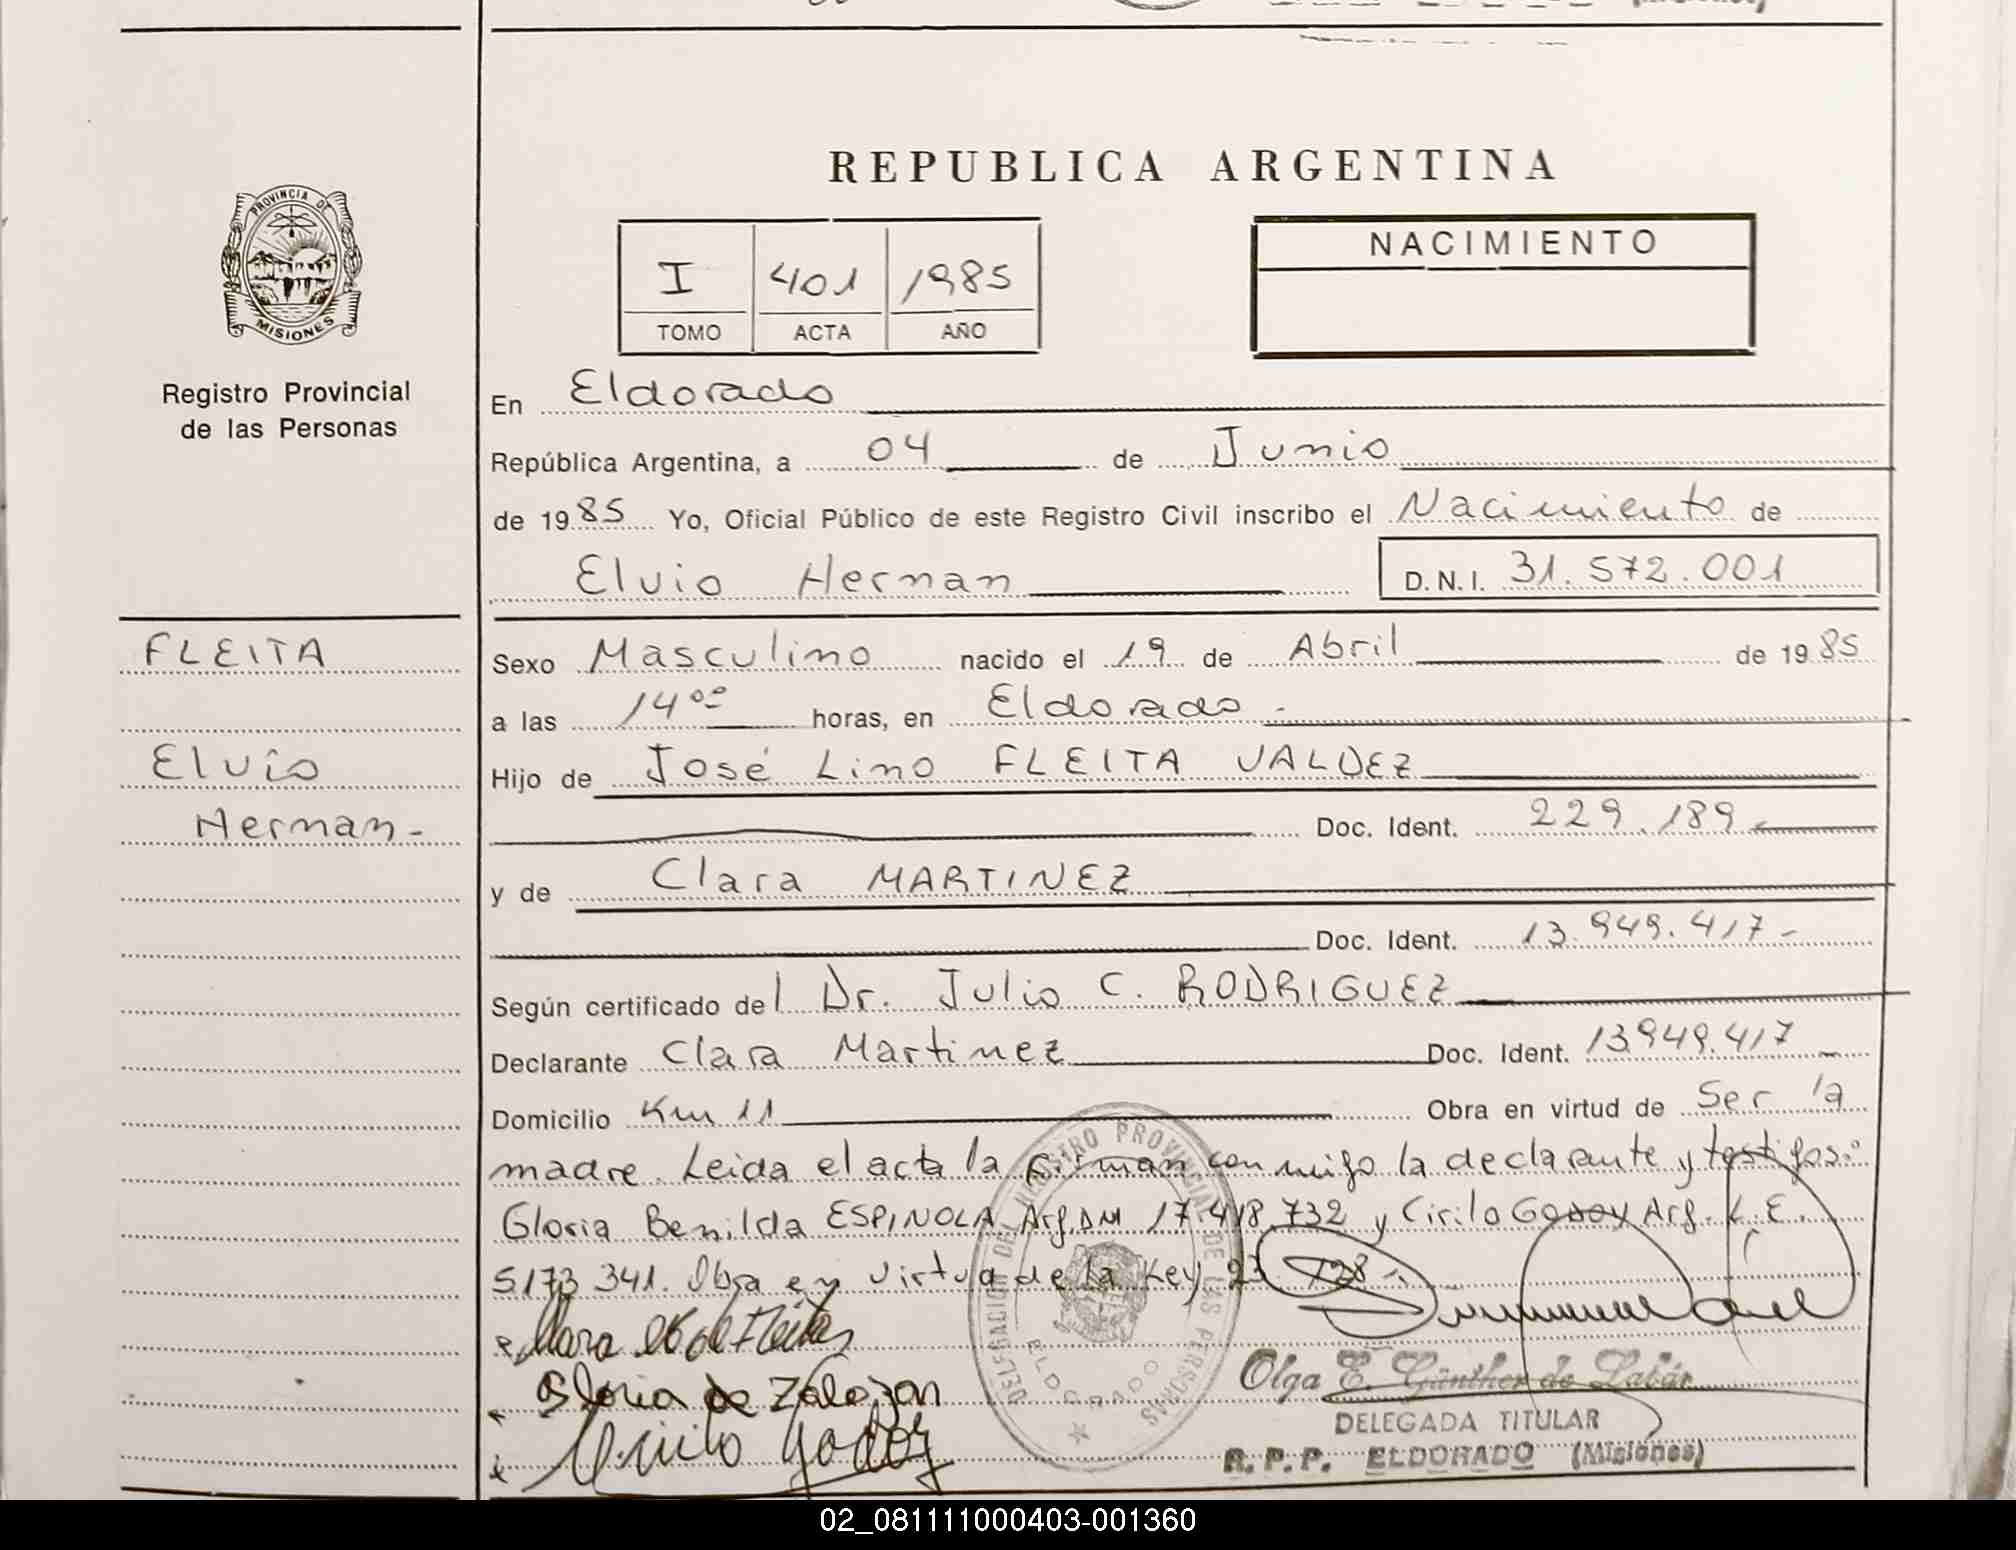 PROVINCIA DE
MISIONES
Registro Provincial
de las Personas
FLEITA
Elvio
Hernan-
REPUBLICA ARGENTINA
I 401 1985
TOMO ACTA AÑO
NACIMIENTO
En Eldorado
República Argentina, a 04 de Junio
de 1985 Yo, Oficial Público de este Registro Civil inscribo el Nacimiento de
Elvio Hernan D.N.I. 31.572.001
Sexo Masculino nacido el 19 de Abril de 1985
a las 14 00 horas, en Eldorado.-
Hijo de José Lino FLEITA VALDEZ
Doc. Ident. 229.189.
y de Clara MARTINEZ
Doc. Ident. 13.949.417-
Según certificado del Dr. Julio C. RODRIGUEZ
Declarante Clara Martinez Doc. Ident. 13949.417
Domicilio Km 11 Obra en virtud de Ser la
madre. Leida el acta la firman con migo la declarante y testigos:
Gloria Benilda ESPINOLA Arg. DNI 17.418.732 y Cirilo Godoy Arg. L.E.
5173 341. Obra en virtud de la Ley 23 128.
Gloria de Zalazar
Cirilo Godoy
DELEGACION DEL REGISTRO PROVINCIAL DE LAS PERSONAS
ELDORADO
Olga E. Günther de Labár
DELEGADA TITULAR
R. P. P. ELDORADO (Misiones)
02_081111000403-001360